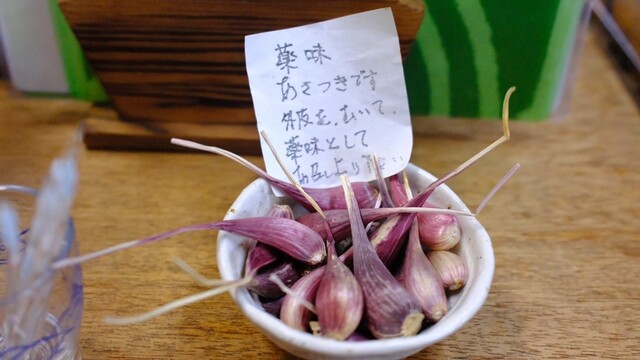 薬味
あさつきです
外皮を、むいて、
薬味として
お召し上り下さい